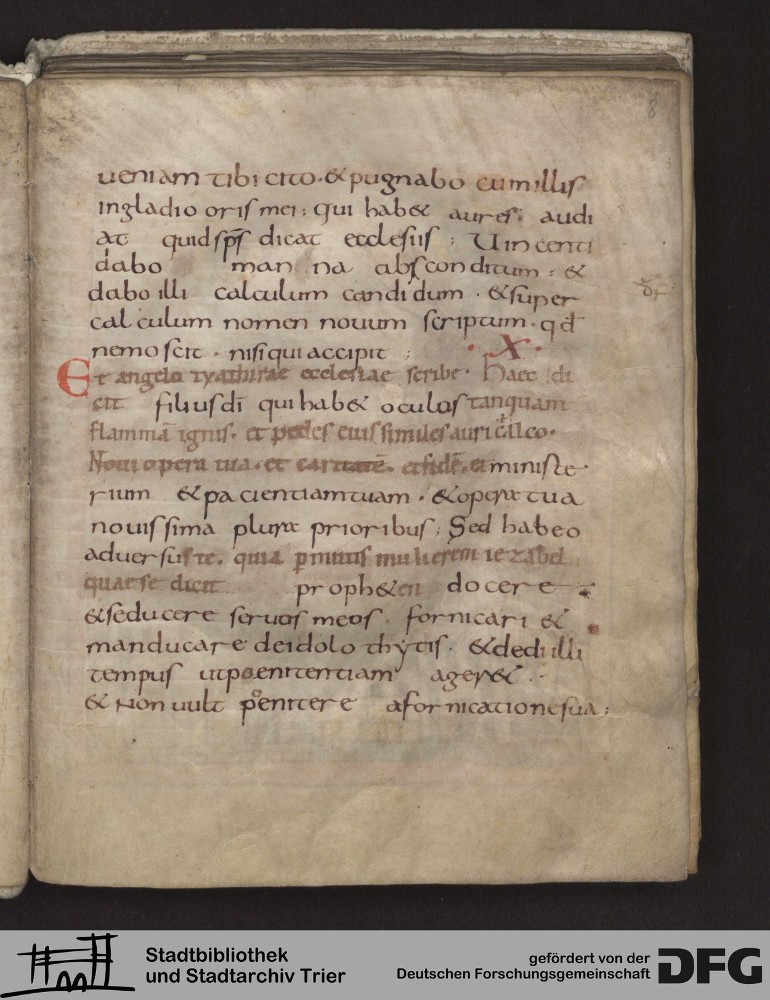 8
ueniam tibi cito · & pugnabo cum illis
ingladio oris mei ; qui hab& aures · audi
at quid sp̄s dicat ecclesiis ; Uincenti
dabo man na absconditum · &
dabo illi calculum candidum · & super
calculum nomen nouum scriptum · qd̄
nemo scit · nisi qui accipit ; · X ·
Et angelo tyathirae ecclesiae scribe · Haec di
cit filius dī qui hab& oculos tanquam
flammā ignis · et pedes eius similes auricalco ·
Noui opera tua · et caritatē · et fidē · et ministe
rium & pacientiam tuam · & opera tua
nouissima plura prioribus ; Sed habeo
aduersus te · quia pmittis mulierem iezabel
quae se dicit proph&en docere
& seducere seruos meos · fornicari &
manducare de idolothytis · & dedi illi
tempus ut poenitentiam ager& ·
& Non uult poenitere a fornicatione sua ;
Stadtbibliothek
und Stadtarchiv Trier
gefördert von der
Deutschen Forschungsgemeinschaft
DFG